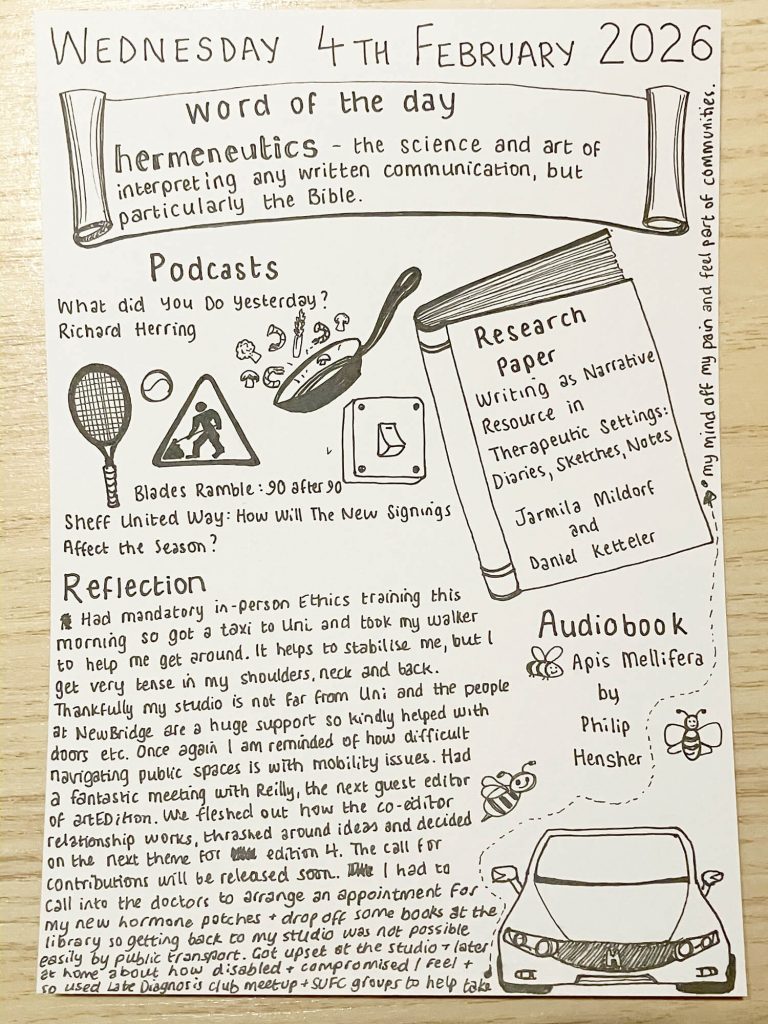 WEDNESDAY 4TH FEBRUARY 2026
word of the day
hermeneutics - the science and art of
interpreting any written communication, but
particularly the Bible.
Podcasts
What did you Do yesterday?
Richard Herring
Blades Ramble: 90 after 90
Sheff United Way: How Will The New Signings
Affect the Season?
Research
Paper
Writing as Narrative
Resource in
Therapeutic Settings:
Diaries, Sketches, Notes
Jarmila Mildorf
and
Daniel Ketteler
Audiobook
Apis Mellifera
by
Philip
Hensher
Reflection
Had mandatory in-person Ethics training this
morning so got a taxi to Uni and took my walker
to help me get around. It helps to stabilise me, but I
get very tense in my shoulders, neck and back.
Thankfully my studio is not far from Uni and the people
at NewBridge are a huge support so kindly helped with
doors etc. Once again I am reminded of how difficult
navigating public spaces is with mobility issues. Had
a fantastic meeting with Reilly, the next guest editor
of artEDition. We fleshed out how the co-editor
relationship works, thrashed around ideas and decided
on the next theme for edition 4. The call for
contributions will be released soon. I had to
call into the doctors to arrange an appointment for
my new hormone patches + drop off some books at the
library so getting back to my studio was not possible
easily by public transport. Got upset at the studio + later
at home about how disabled + compromised I feel +
so used Late Diagnosis club meetup + SUFC groups to help take
my mind off my pain and feel part of communities.